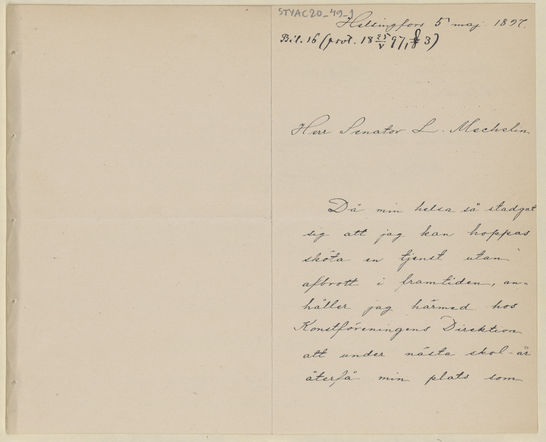 STYAC20_49_1
Helsingfors 5 maj 1897.
Bil. 16 (prot. 18 25/V 97, § 3)
Herr Senator L. Mechelin.
Då min helsa så stadgat
sig att jag kan hoppas
sköta en tjenst utan
afbrott i framtiden, an-
håller jag härmed hos
Konstföreningens Direktion
att under nästa skol-år
återfå min plats som